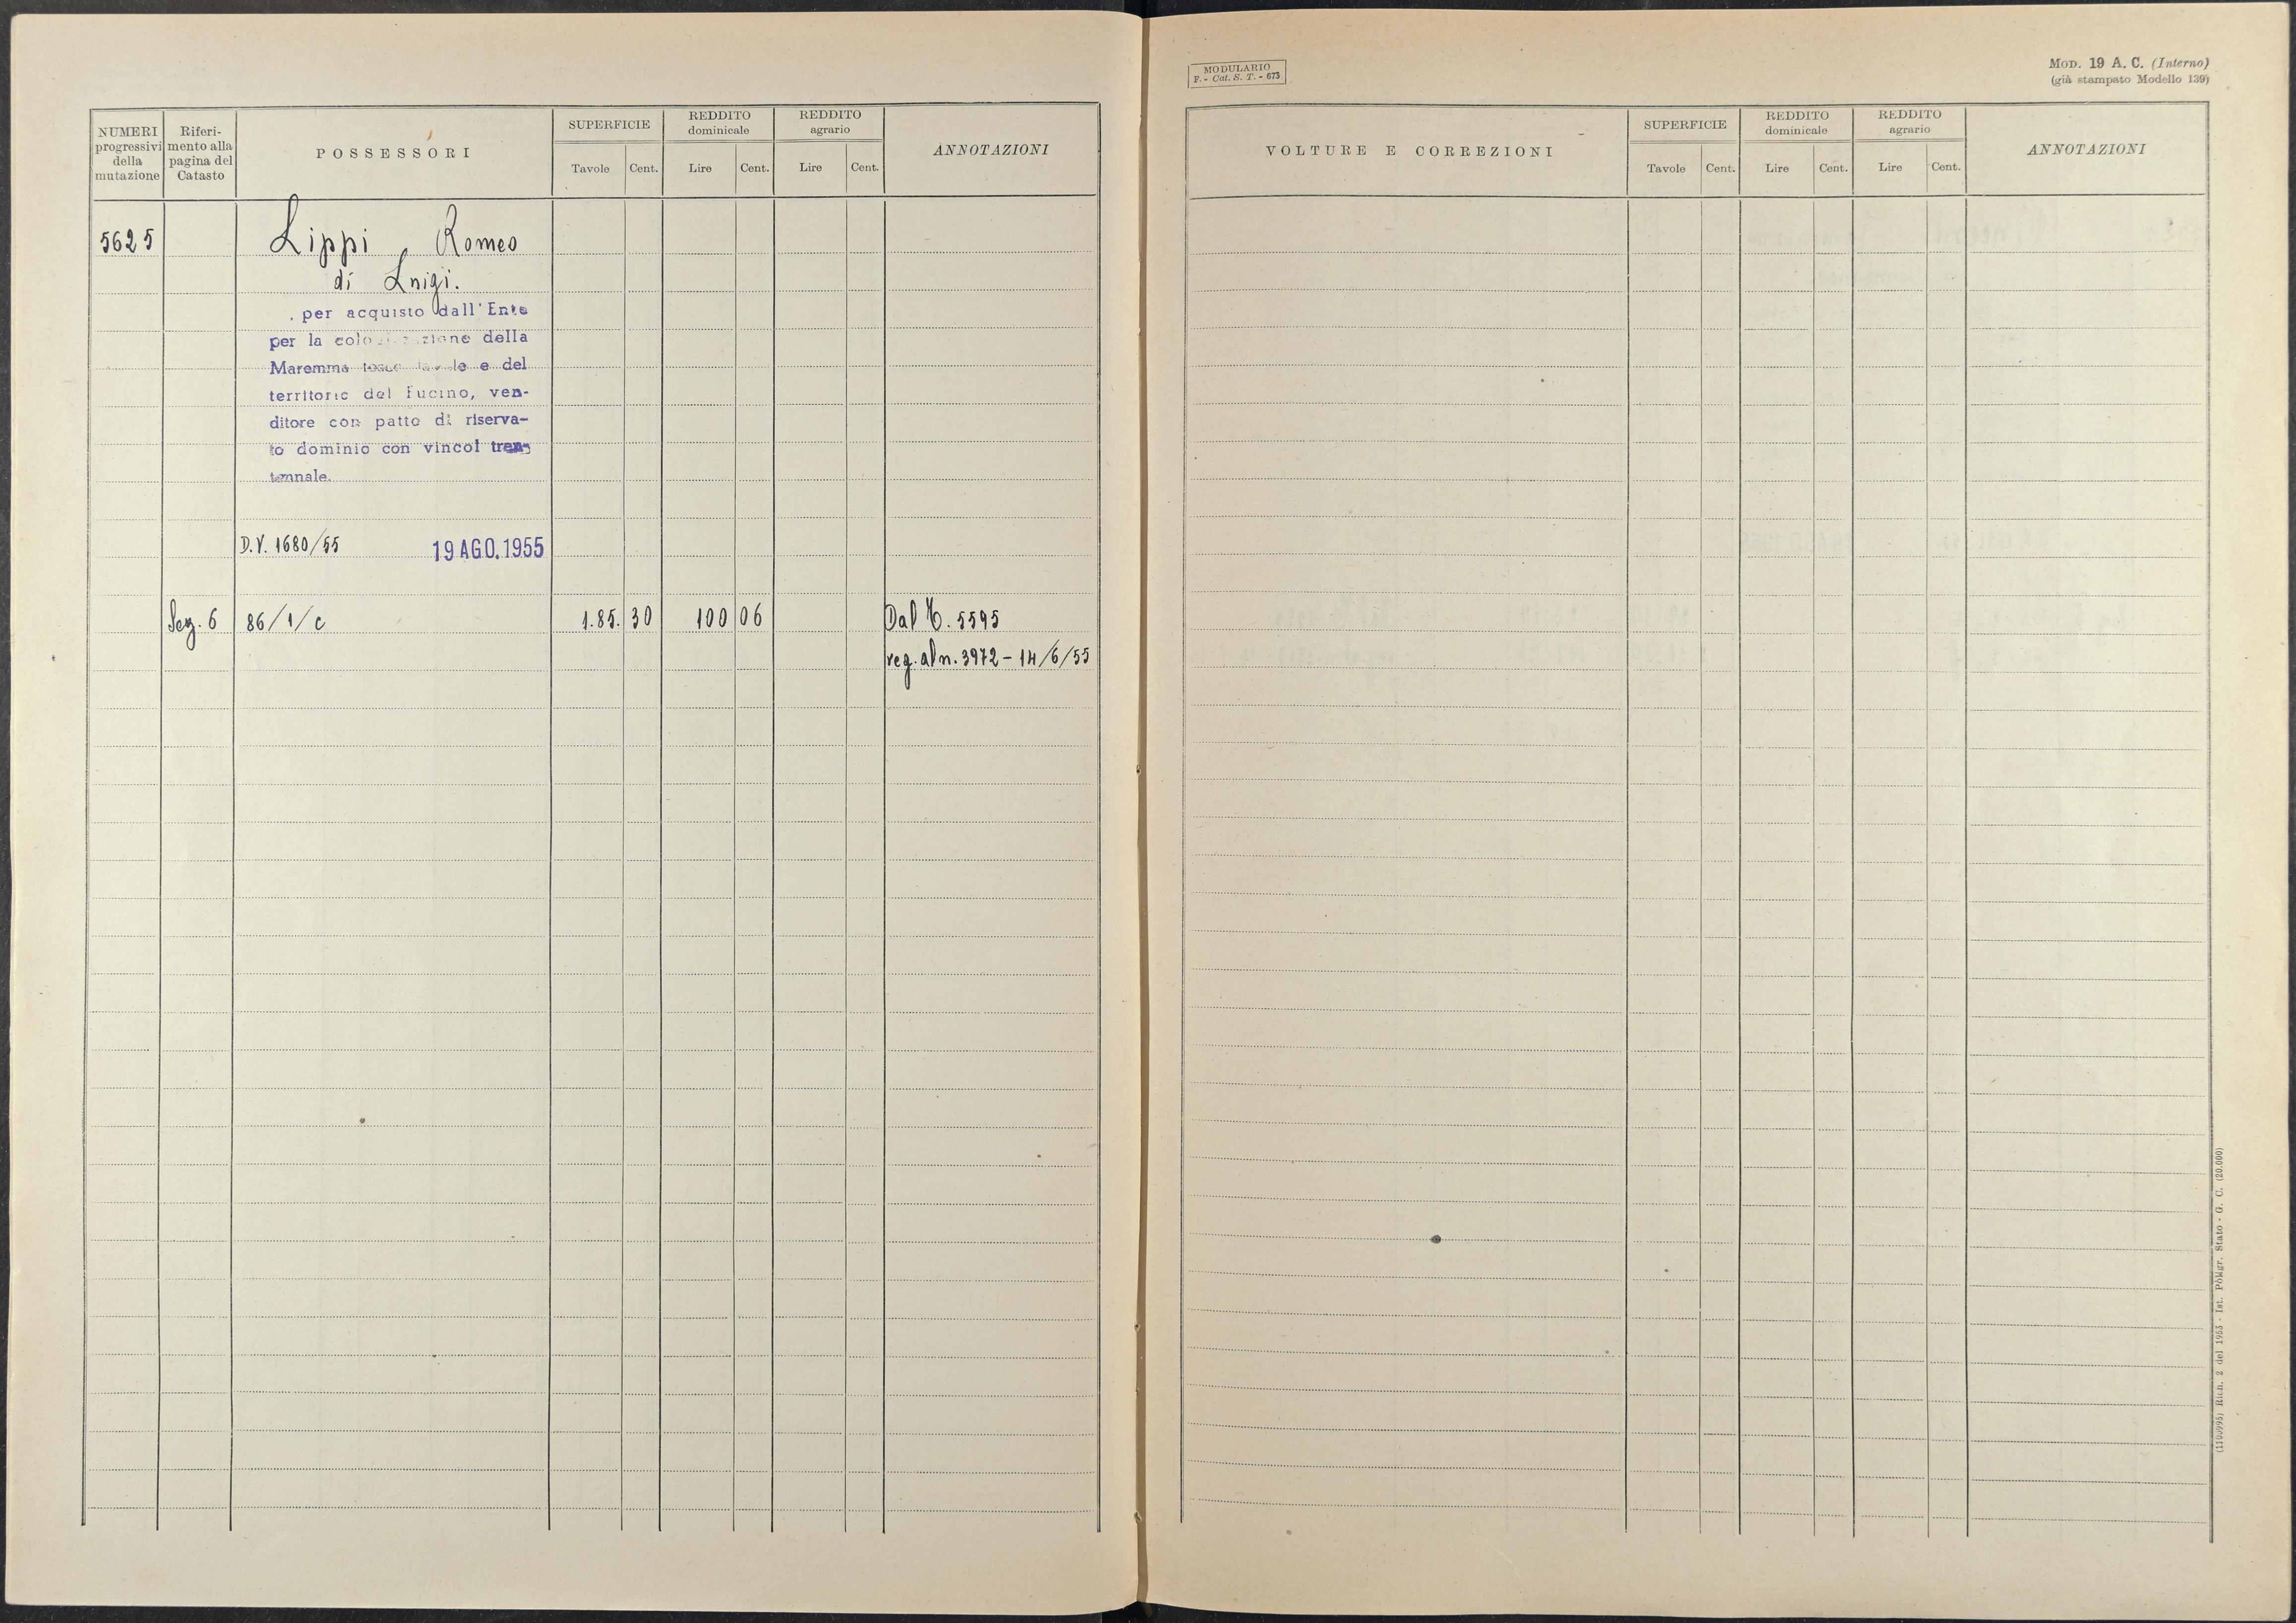 NUMERI
progressivi
della
mutazione
Riferi-
mento alla
pagina del
Catasto
POSSESSORI
SUPERFICIE
Tavole Cent.
REDDITO
dominicale
Lire Cent.
REDDITO
agrario
Lire Cent.
ANNOTAZIONI
5625 Lippi Romeo
di Luigi.
per acquisto dall'Ente
per la della
Maremma e del
territorio del Fucino, ven-
ditore con patto di riserva-
to dominio con vincol tren-
tennale.
D.V. 1680/55 19 AGO. 1955
Sez. 6 86/1/c 1.85. 30 100 06 Dal 5595
reg. al n. 3972 - 14/6/55
MODULARIO
F. - Cat. S. T. - 673
MOD. 19 A. C. (Interno)
(già stampato Modello 139)
VOLTURE E CORREZIONI
SUPERFICIE
Tavole Cent.
REDDITO
dominicale
Lire Cent.
REDDITO
agrario
Lire Cent.
ANNOTAZIONI
(1100995) Rich. 2 del 1953 - Ist. Poligr. Stato - G. C. (20.000)